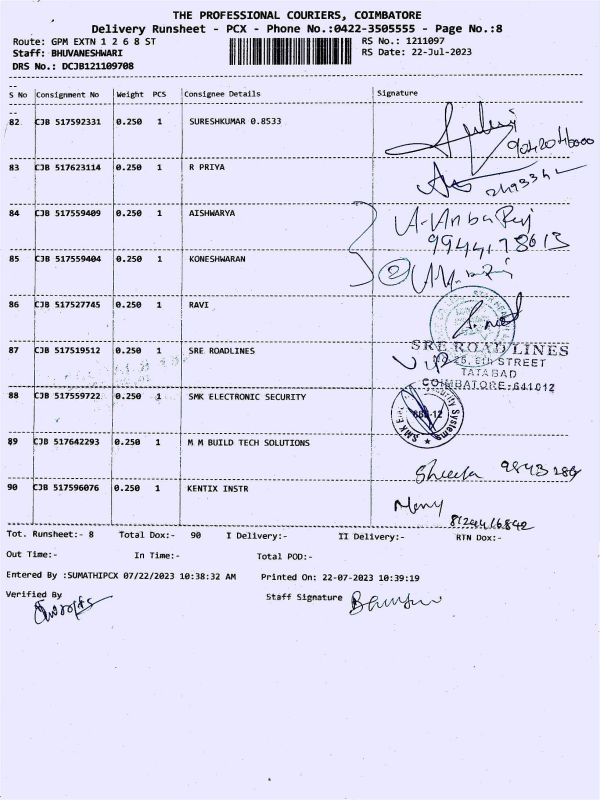 THE PROFESSIONAL COURIERS, COIMBATORE
Delivery Runsheet - PCX - Phone No.:0422-3505555 - Page No.:8
Route: GPM EXTN 1 2 6 8 ST
RS No.: 1211097
Staff: BHUVANESHWARI
RS Date: 22-Jul-2023
DRS No.: DCJB121109708
S No Consignment No Weight PCS Consignee Details Signature
82 CJB 517592331 0.250 1 SURESHKUMAR 0.8533
83 CJB 517623114 0.250 1 R PRIYA
84 CJB 517559409 0.250 1 AISHWARYA
9944178613
85 CJB 517559404 0.250 1 KONESHWARAN
86 CJB 517527745 0.250 1 RAVI
87 CJB 517519512 0.250 1 SRE ROADLINES
SRE ROAD LINES
STREET
TATABAD
COIMBATORE-641012
88 CJB 517559722 0.250 1 SMK ELECTRONIC SECURITY
89 CJB 517642293 0.250 1 M M BUILD TECH SOLUTIONS
Sheela
90 CJB 517596076 0.250 1 KENTIX INSTR
8124416842
Tot. Runsheet:- 8 Total Dox:- 90 I Delivery:- II Delivery:- RTN Dox:-
Out Time:- In Time:- Total POD:-
Entered By :SUMATHIPCX 07/22/2023 10:38:32 AM Printed On: 22-07-2023 10:39:19
Verified By Staff Signature